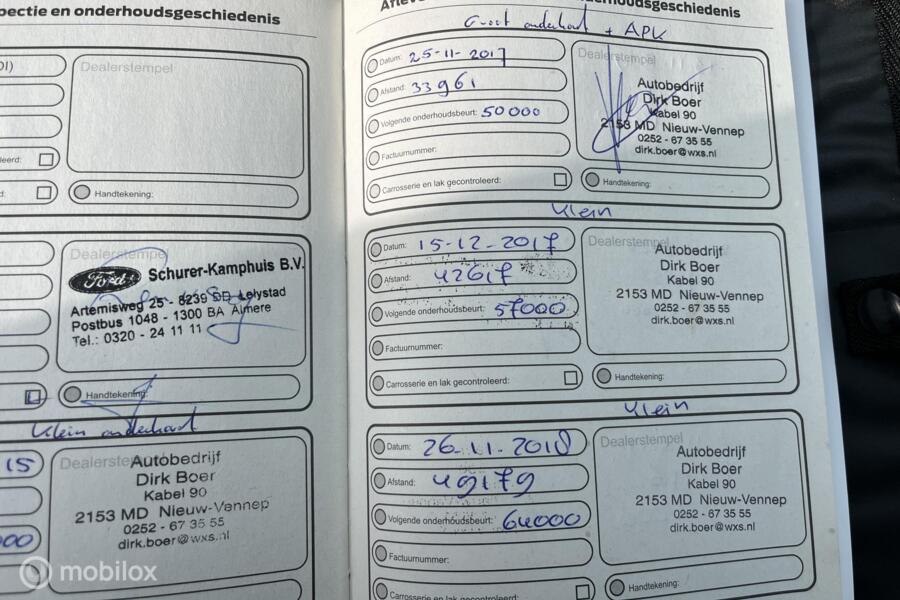 pectie en onderhoudsgeschiedenis
DI)
Dealerstempel
leerd:
d:
Handtekening:
Dealerstempel
Ford
Schurer-Kamphuis B.V.
Artemisweg 25 - 8239 DD Lelystad
Postbus 1048 - 1300 BA Almere
Tel.: 0320 - 24 11 11
Handtekening:
Klein onderhoud
15
Dealerstempel
Autobedrijf
Dirk Boer
Kabel 90
2153 MD Nieuw-Vennep
0252 - 67 35 55
dirk.boer@wxs.nl
000
houdsgeschiedenis
Groot onderhoud + APK
Datum: 25-11-2017
Afstand: 33961
Volgende onderhoudsbeurt: 50000
Factuurnummer:
Carrosserie en lak gecontroleerd:
Dealerstempel
Autobedrijf
Dirk Boer
Kabel 90
2153 MD Nieuw-Vennep
0252 - 67 35 55
dirk.boer@wxs.nl
Handtekening:
Klein
Datum: 15-12-2017
Afstand: 42617
Volgende onderhoudsbeurt: 57000
Factuurnummer:
Carrosserie en lak gecontroleerd:
Dealerstempel
Autobedrijf
Dirk Boer
Kabel 90
2153 MD Nieuw-Vennep
0252 - 67 35 55
dirk.boer@wxs.nl
Handtekening:
Klein
Datum: 26-11-2018
Afstand: 49179
Volgende onderhoudsbeurt: 64000
Factuurnummer:
Carrosserie en lak gecontroleerd:
Dealerstempel
Autobedrijf
Dirk Boer
Kabel 90
2153 MD Nieuw-Vennep
0252 - 67 35 55
dirk.boer@wxs.nl
Handtekening:
mobilox